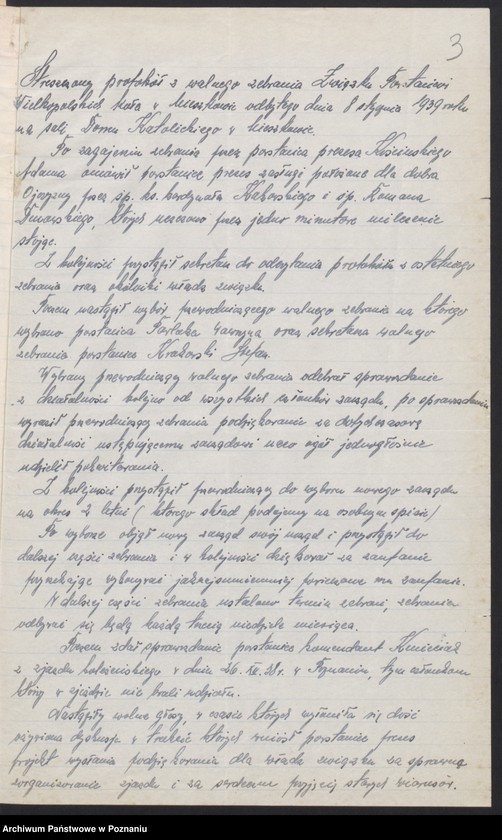 3
Streszczony protokół z walnego zebrania Związku Powstańców
Wielkopolskich koła w Mieszkowie odbytego dnia 8 stycznia 1939 roku
na sali Domu Katolickiego w Mieszkowie.
Po zagajeniu zebrania przez powstańca prezesa
Adama omówił powstaniec prezes zasługi położone dla dobra
Ojczyzny przez śp. ks. kardynała Kakowskiego i śp. Romana
Dmowskiego, których uczczono przez jedno minutowe milczenie
stojąc.
Z kolejności przystąpił sekretarz do odczytania protokółu z ostatniego
zebrania oraz okólniki władz związku.
Poczem nastąpił wybór przewodniczącego walnego zebrania na którego
wybrano powstańca Wawrzyna oraz sekretarza walnego
zebrania powstańca Krakowski Stefan.
Wybrany przewodniczący walnego zebrania odebrał sprawozdanie
z działalności kolejno od wszystkich członków zarządu, po sprawozdaniu
wyraził przewodniczący zebrania podziękowanie za dotychczasową
działalność ustępującemu zarządowi jednogłośnie
udzielił pokwitowania.
Z kolejności przystąpił przewodniczący do wyboru nowego zarządu
na okres 2 letni (którego skład podajemy na osobnym spisie)
Po wyborze objął nowy zarząd swój urząd i przystąpił do
dalszej części zebrania i w kolejności dziękował za zaufanie
przyrzekając wykonywać jaknajsumienniej powierzone mu zaufanie.
W dalszej części zebrania ustalono termin zebrań, zebrania
odbywać się będą każdą trzecią niedzielę miesiąca.
Poczem zdał sprawozdanie powstaniec komendant
z zjazdu koleżeńskiego w dniu 26. XII. 38 r. w Poznaniu, tym członkom
którzy w zjeździe nie brali udziału.
Nastąpiły wolne głosy, w czasie których wyłoniła się dość
ożywiona dyskusja w trakcie których wniósł powstaniec prezes
projekt wysłania podziękowania dla władz związku za sprawne
zorganizowanie zjazdu i za serdeczne przyjęcie starych wiarusów.
Archiwum Państwowe w Poznaniu
szukajwarchiwach.gov.pl